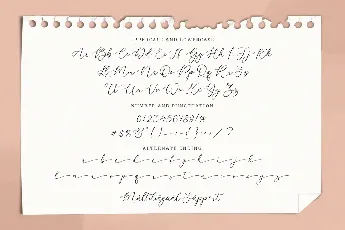 UPPERCASE AND LOWERCASE
Aa Bb Cc Dd Ee Ff Gg Hh Ii Jj Kk
Ll Mm Nn Oo Pp Qq Rr Ss
Tt Uu Vv Ww Xx Yy Zz
NUMBER AND PUNCTUATION
0123456789
ALTERNATE ENDING
a b c d e f g h i j k
l m n o p q r s t u v w x y z
Multilingual Support